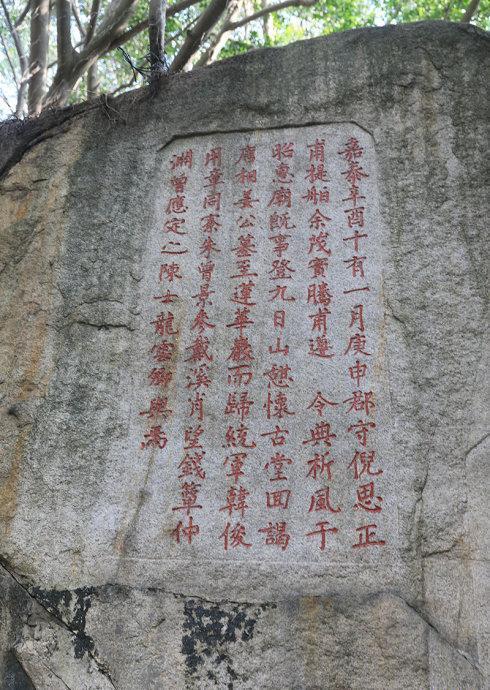 嘉泰辛酉十有一月庚申郡守倪思正
甫提舶余茂實騰甫遵 令典祈風于
昭惠廟既事登九日山憇懷古堂回謁
唐相姜公墓至蓮華巖而歸統軍韓俊
用章同寮朱曾景參戴溪肖望錢蕈仲
淵曾應定之陳士龍雲卿與焉